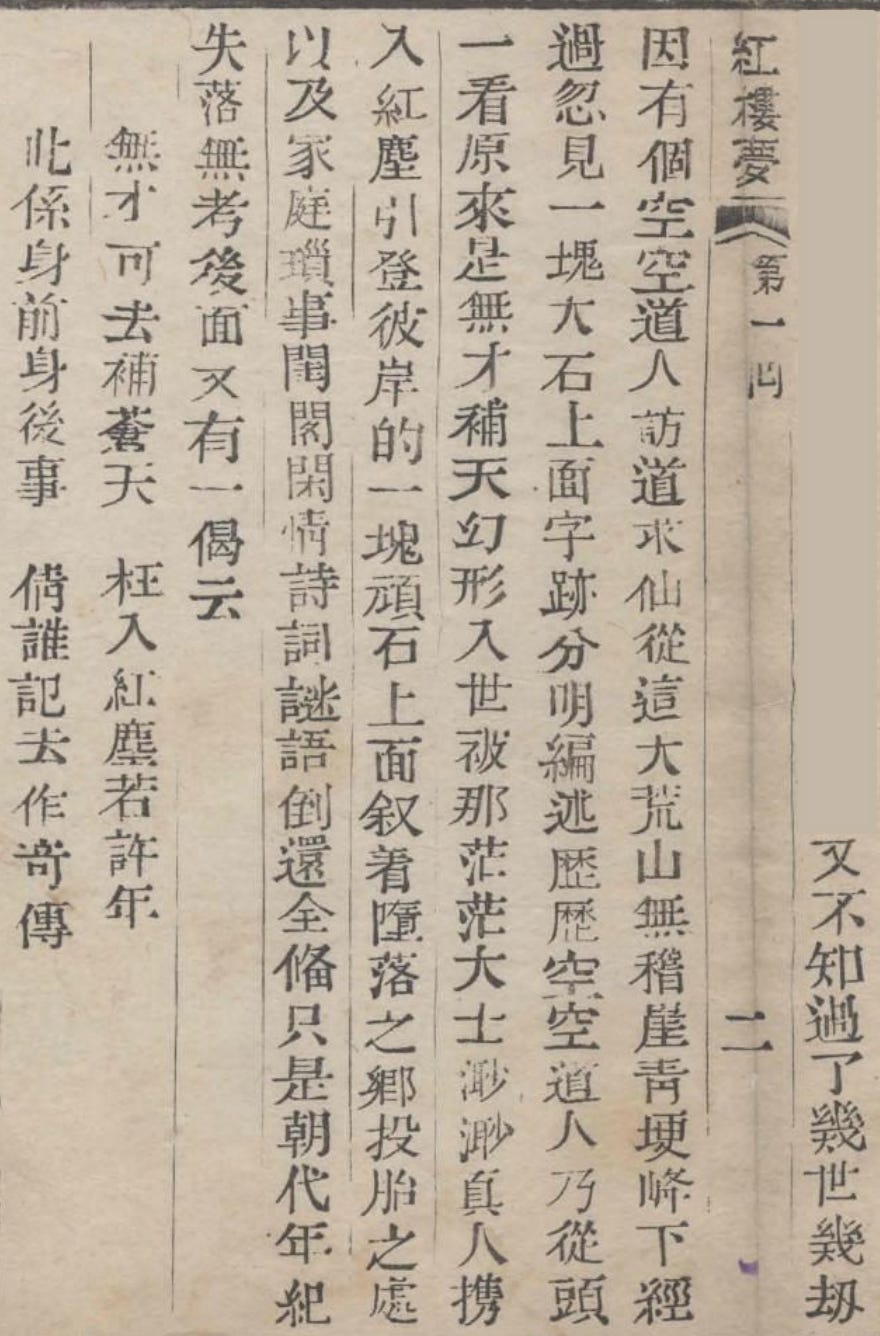 又不知過了幾世幾刼
紅樓夢 第一回 二
因有個空空道人訪道求仙從這大荒山無稽崖靑埂峰下經
過忽見一塊大石上面字跡分明編述歷歷空空道人乃從頭
一看原來是無才補天幻形入世被那茫茫大士渺渺真人携
入紅塵引登彼岸的一塊頑石上面叙着墮落之鄉投胎之處
以及家庭瑣事閨閣閑情詩詞謎語倒還全俻只是朝代年紀
失落無考後面又有一偈云
無才可去補蒼天 枉入紅塵若許年
此係身前身後事 倩誰記去作奇傳